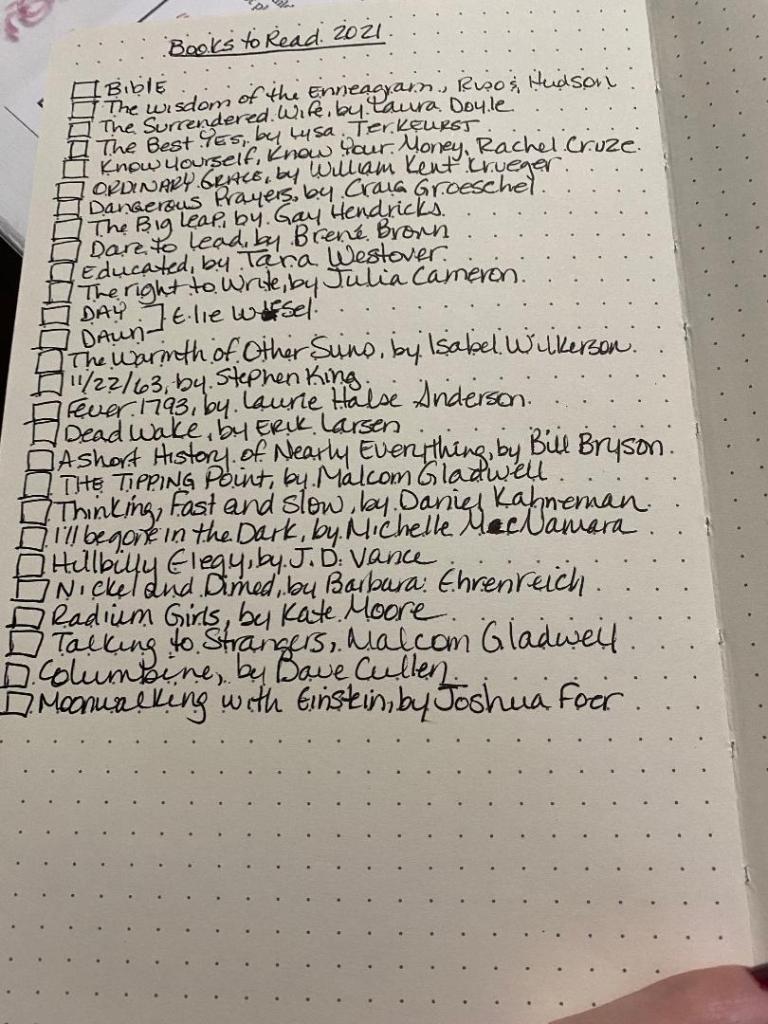 Books to Read 2021
BIBLE
The Wisdom of the Enneagram, Riso & Hudson
The Surrendered Wife, by Laura Doyle
The Best YES, by Lysa TerKEURST
Know Yourself, Know Your Money, Rachel Cruze
ORDINARY GRACE, by William Kent Krueger
Dangerous Prayers, by Craig Groeschel
The Big Leap, by Gay Hendricks
Dare to Lead, by Brené Brown
Educated, by Tara Westover
The right to Write, by Julia Cameron
DAY ] Elie Wiesel
DAWN
The Warmth of Other Suns, by Isabel Wilkerson
11/22/63, by Stephen King
Fever 1793, by Laurie Halse Anderson
Dead Wake, by ERIK Larsen
A Short History of Nearly Everything, by Bill Bryson
THE TIPPING Point, by Malcom Gladwell
Thinking, Fast and Slow, by Daniel Kahneman
I'll be gone in the Dark, by Michelle MacNamara
Hillbilly Elegy, by J.D. Vance
Nickel and Dimed, by Barbara Ehrenreich
Radium Girls, by Kate Moore
Talking to Strangers, Malcom Gladwell
Columbine, by Dave Cullen
Moonwalking with Einstein, by Joshua Foer